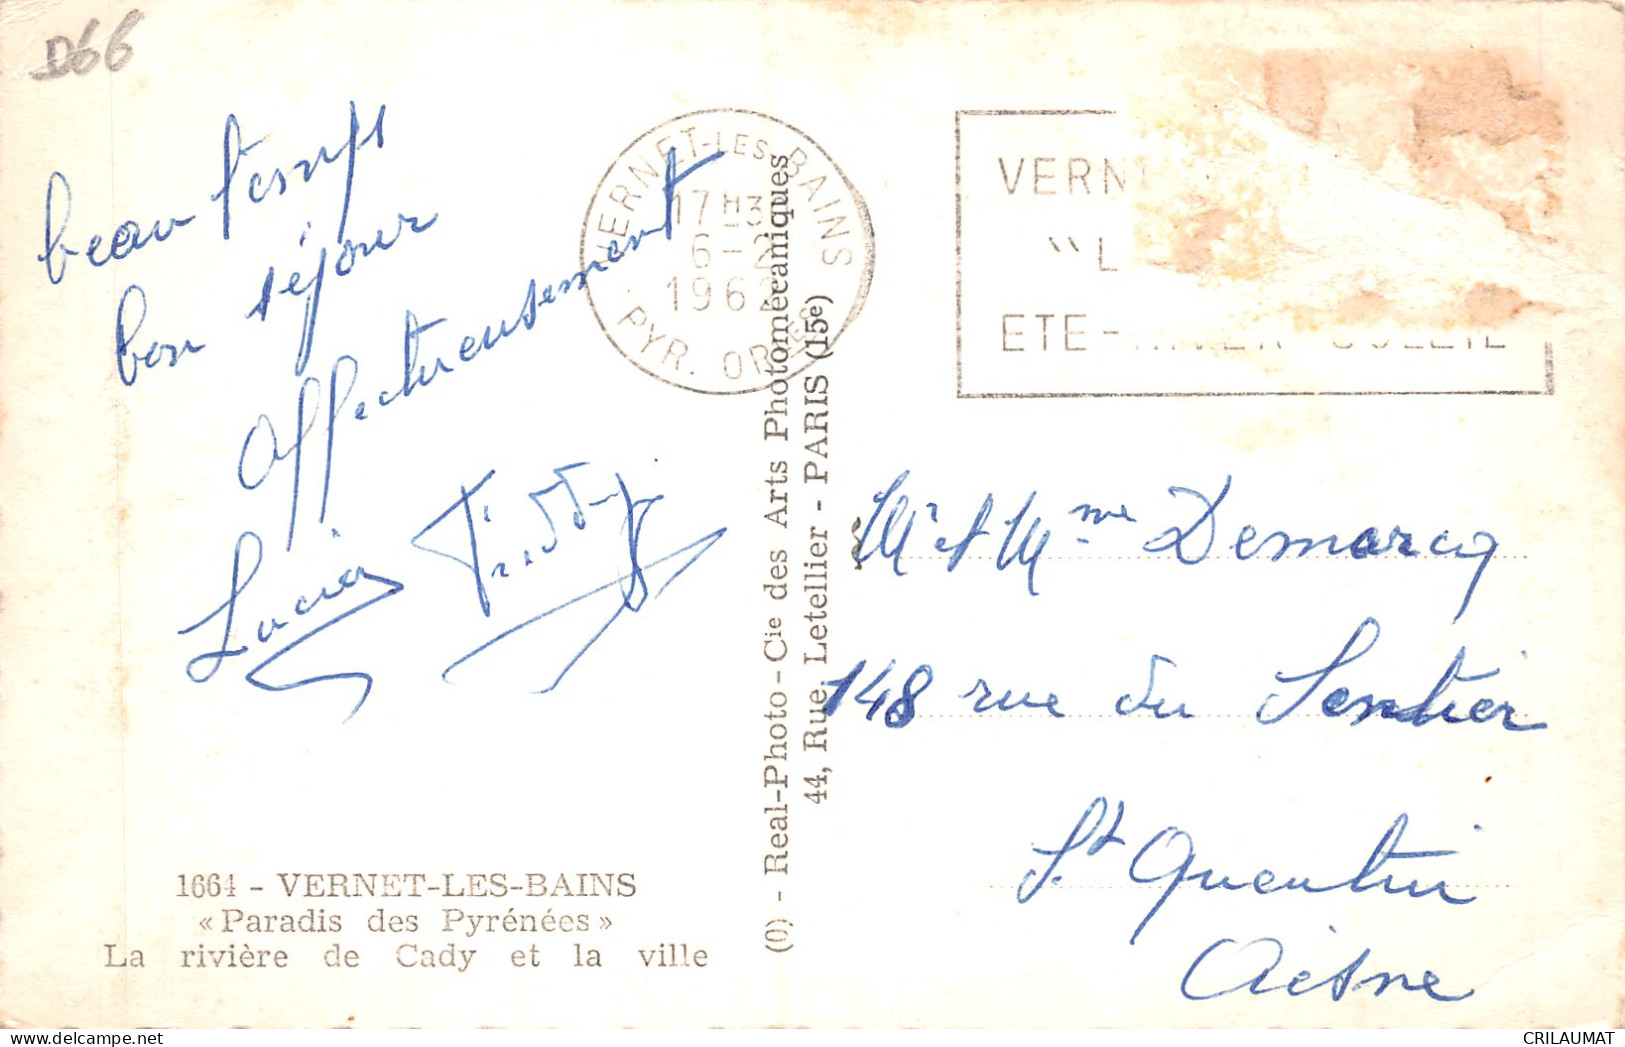 D66
beau temps
bon séjour
affectueusement
Lucien
VERNET-LES-BAINS
17 H3
6-2
196
PYR. OR
VERN
"L
ETE - HIVER SOLEIL
Mr et Mme Demarcq
148 rue du Sentier
St Quentin
Aisne
1664 - VERNET-LES-BAINS
« Paradis des Pyrénées »
La rivière de Cady et la ville
(O) - Real-Photo - Cie des Arts Photomécaniques
44, Rue Letellier - PARIS (15e)
CRILAUMAT